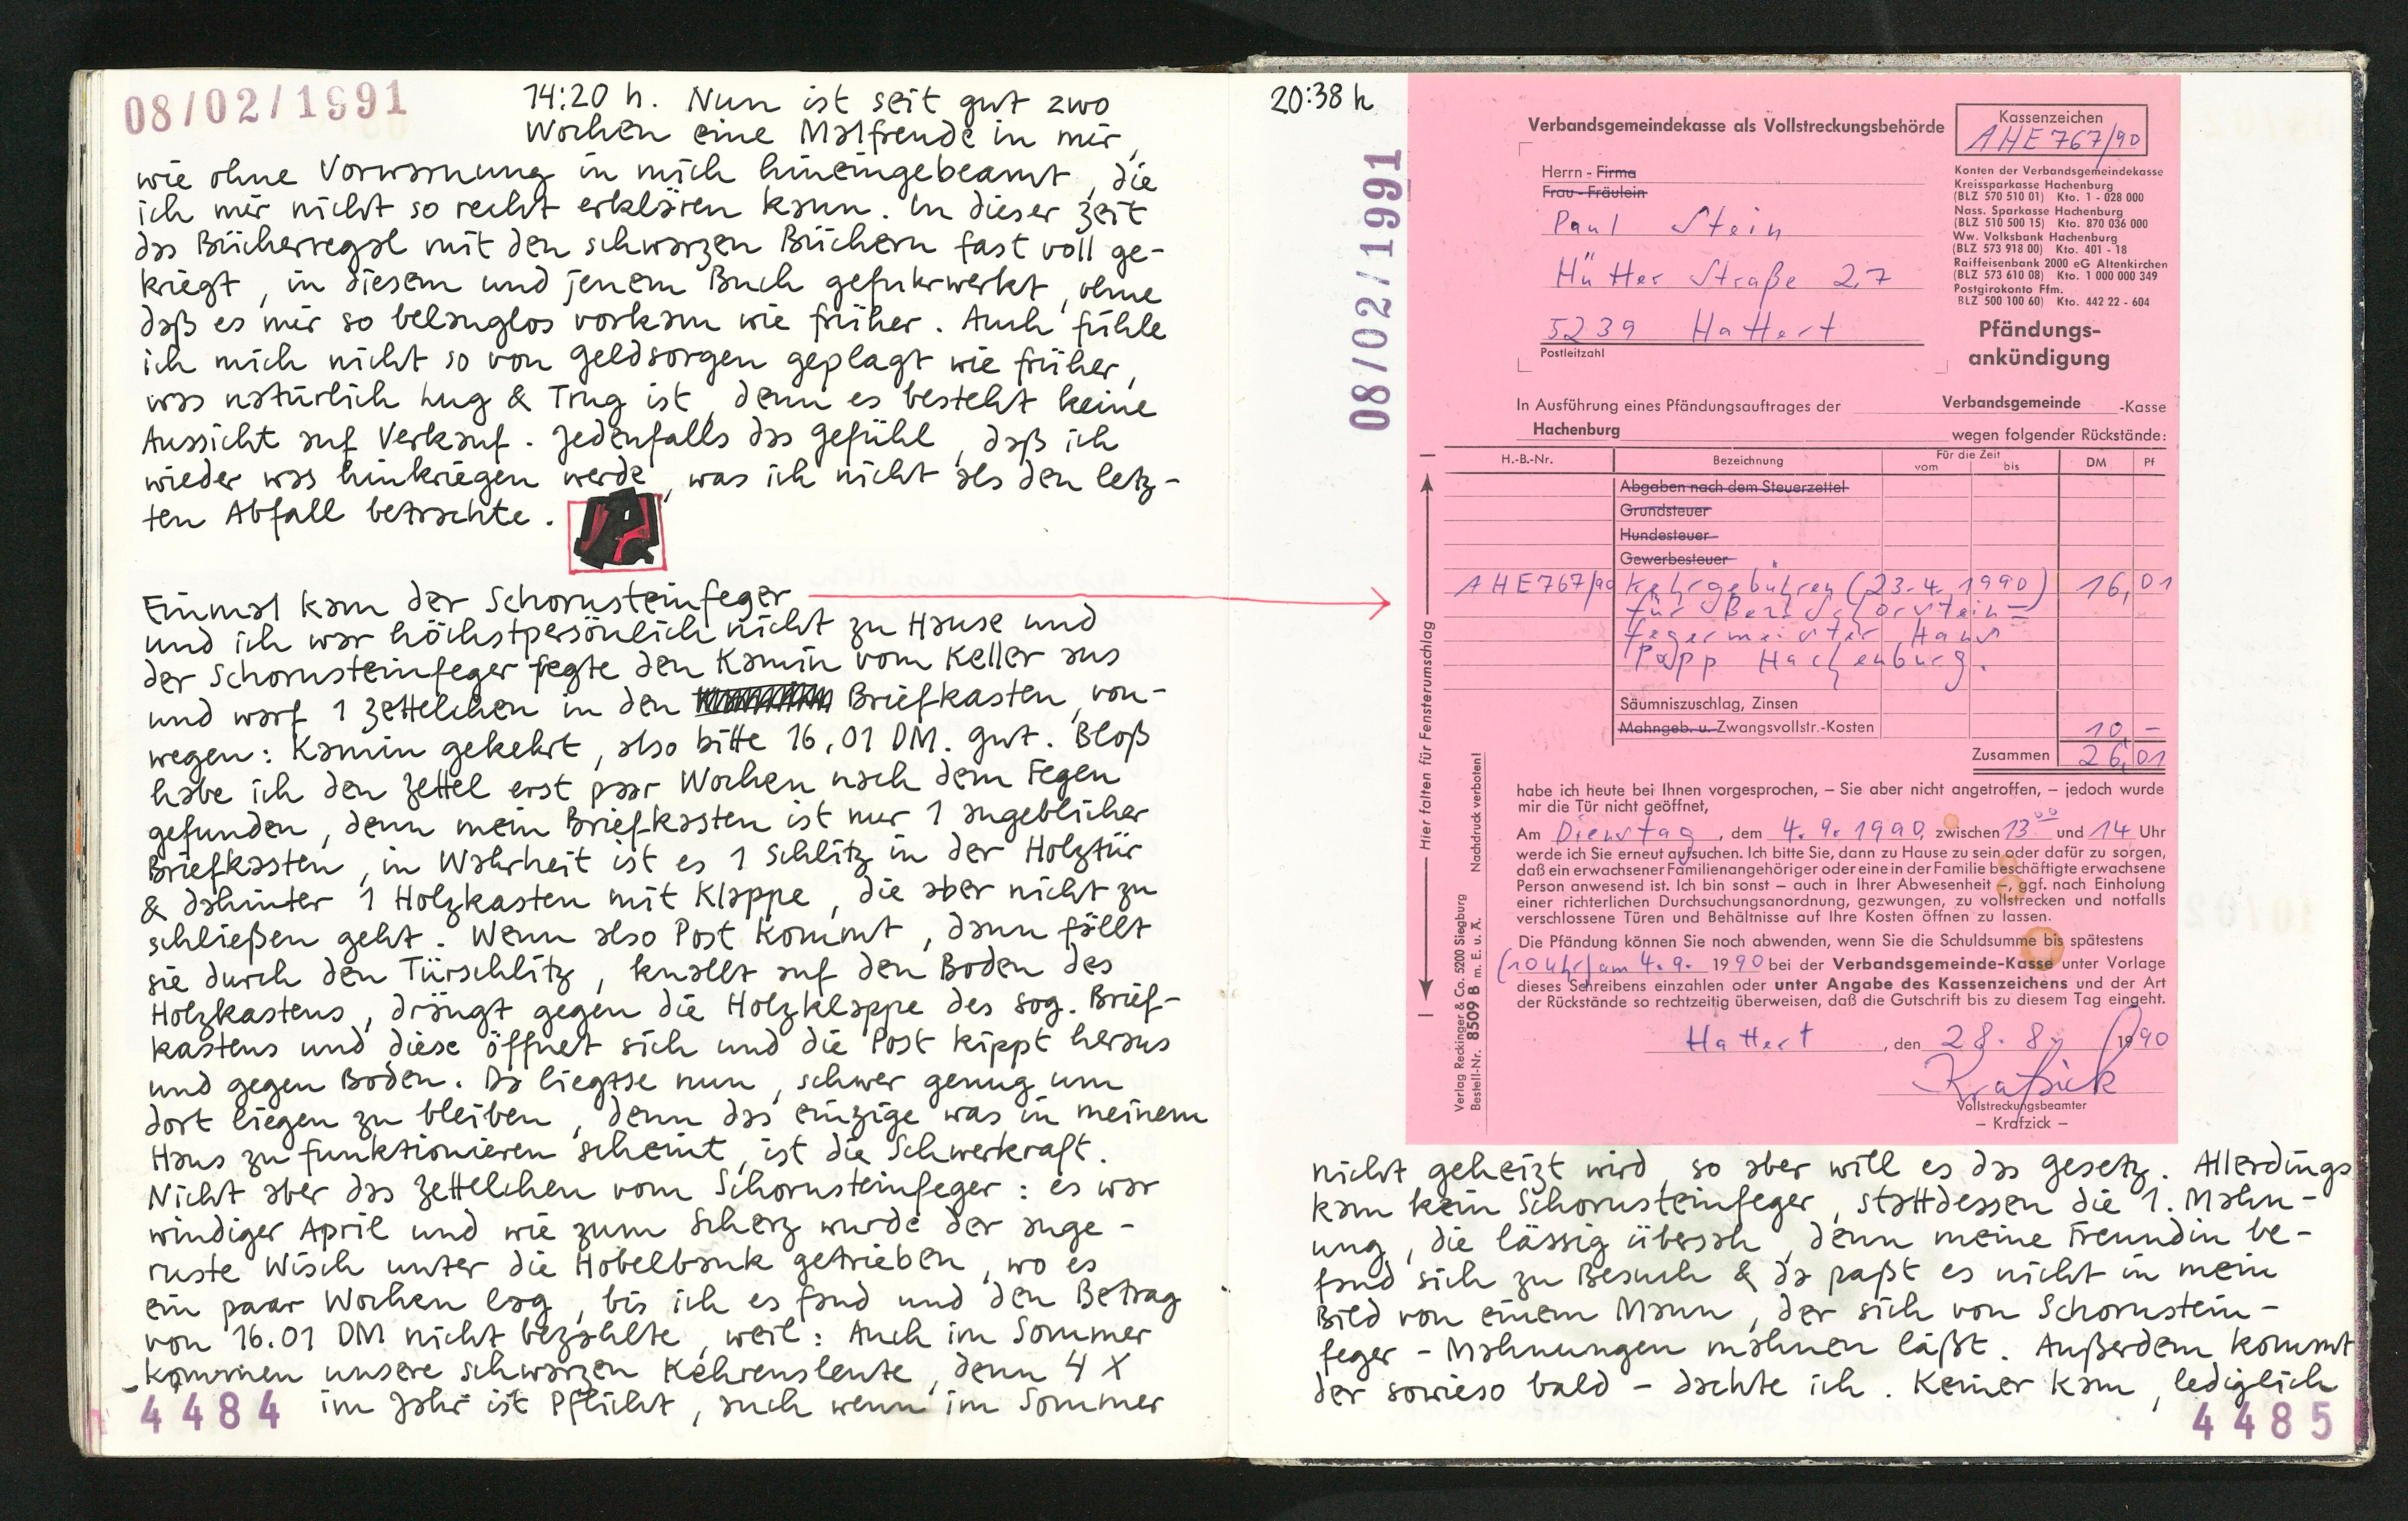 08/02/1991
14:20 h. Nun ist seit gut zwo
Wochen eine Malfreude in mir,
wie ohne Vorwarnung in mich hineingebeamt, die
ich mir nicht so recht erklären kann. In dieser Zeit
das Bücherregal mit den schwarzen Büchern fast voll ge-
kriegt, in diesem und jenem Buch gefuhrwerkt, ohne
daß es mir so belanglos vorkam wie früher. Auch fühle
ich mich nicht so von Geldsorgen geplagt wie früher,
was natürlich Lug & Trug ist, denn es besteht keine
Aussicht auf Verkauf. Jedenfalls das Gefühl, daß ich
wieder was hinkriegen werde, was ich nicht als den letz-
ten Abfall betrachte.
Einmal kam der Schornsteinfeger
und ich war höchstpersönlich nicht zu Hause und
der Schornsteinfeger fegte den Kamin vom Keller aus
und warf 1 Zettelchen in den Briefkasten, von-
wegen: Kamin gekehrt, also bitte 16,01 DM. Gut. Bloß
habe ich den Zettel erst paar Wochen nach dem Fegen
gefunden, denn mein Briefkasten ist nur 1 angeblicher
Briefkasten, in Wahrheit ist es 1 Schlitz in der Holztür
& dahinter 1 Holzkasten mit Klappe, die aber nicht zu
schließen geht. Wenn also Post kommt, dann fällt
sie durch den Türschlitz, knallt auf den Boden des
Holzkastens, drängt gegen die Holzklappe des sog. Brief-
kastens und diese öffnet sich und die Post kippt heraus
und gegen Boden. Da liegtse nun, schwer genug um
dort liegen zu bleiben, denn das einzige was in meinem
Haus zu funktionieren scheint, ist die Schwerkraft.
Nicht aber das Zettelchen vom Schornsteinfeger: es war
windiger April und wie zum Scherz wurde der ange-
ruste Wisch unter die Hobelbank getrieben, wo es
ein paar Wochen lag, bis ich es fand und den Betrag
von 16.01 DM nicht bezahlte, weil: Auch im Sommer
kommen unsere schwarzen Kehrensleute, denn 4 X
im Jahr ist Pflicht, auch wenn im Sommer
4484
20:38 h
08/02/1991
Verbandsgemeindekasse als Vollstreckungsbehörde
Kassenzeichen
AHE 767/90
Herrn - Firma
Frau - Fräulein
Paul Stein
Hütter Straße 27
5239 Hattert
Postleitzahl
Konten der Verbandsgemeindekasse
Kreissparkasse Hachenburg
(BLZ 570 510 01) Kto. 1 - 028 000
Nass. Sparkasse Hachenburg
(BLZ 510 500 15) Kto. 870 036 000
Ww. Volksbank Hachenburg
(BLZ 573 918 00) Kto. 401 - 18
Raiffeisenbank 2000 eG Altenkirchen
(BLZ 573 610 08) Kto. 1 000 000 349
Postgirokonto Ffm.
(BLZ 500 100 60) Kto. 442 22 - 604
Pfändungs-
ankündigung
In Ausführung eines Pfändungsauftrages der Verbandsgemeinde -Kasse
Hachenburg wegen folgender Rückstände:
H.-B.-Nr. Bezeichnung Für die Zeit vom bis DM Pf
Abgaben nach dem Steuerzettel
Grundsteuer
Hundesteuer
Gewerbesteuer
AHE 767/90 Kehrgebühren (23.4.1990) 16,01
für Bez. Schorstein=
fegermeister Hans
Papp Hachenburg.
Säumniszuschlag, Zinsen
Mahngeb. u. Zwangsvollstr.-Kosten 10,-
Zusammen 26,01
habe ich heute bei Ihnen vorgesprochen, – Sie aber nicht angetroffen, – jedoch wurde
mir die Tür nicht geöffnet,
Am Dienstag, dem 4.9.1990, zwischen 13 00 und 14 Uhr
werde ich Sie erneut aufsuchen. Ich bitte Sie, dann zu Hause zu sein oder dafür zu sorgen,
daß ein erwachsener Familienangehöriger oder eine in der Familie beschäftigte erwachsene
Person anwesend ist. Ich bin sonst – auch in Ihrer Abwesenheit –, ggf. nach Einholung
einer richterlichen Durchsuchungsanordnung, gezwungen, zu vollstrecken und notfalls
verschlossene Türen und Behältnisse auf Ihre Kosten öffnen zu lassen.
Die Pfändung können Sie noch abwenden, wenn Sie die Schuldsumme bis spätestens
(10 Uhr) am 4.9. 1990 bei der Verbandsgemeinde-Kasse unter Vorlage
dieses Schreibens einzahlen oder unter Angabe des Kassenzeichens und der Art
der Rückstände so rechtzeitig überweisen, daß die Gutschrift bis zu diesem Tag eingeht.
Hattert, den 28.8. 1990
Krafzick
Vollstreckungsbeamter
– Krafzick –
Hier falten für Fensterumschlag
Nachdruck verboten!
Verlag Reckinger & Co. 5200 Siegburg
Bestell-Nr. 8509 B m. E. u. Ä.
nicht geheizt wird, so aber will es das Gesetz. Allerdings
kam kein Schornsteinfeger, stattdessen die 1. Mahn-
ung, die lässig übersah, denn meine Freundin be-
fand sich zu Besuch & da paßt es nicht in mein
Bild von einem Mann, der sich von Schornstein-
feger-Mahnungen mahnen läßt. Außerdem kommt
der sowieso bald - dachte ich. Keiner kam, lediglich
4485